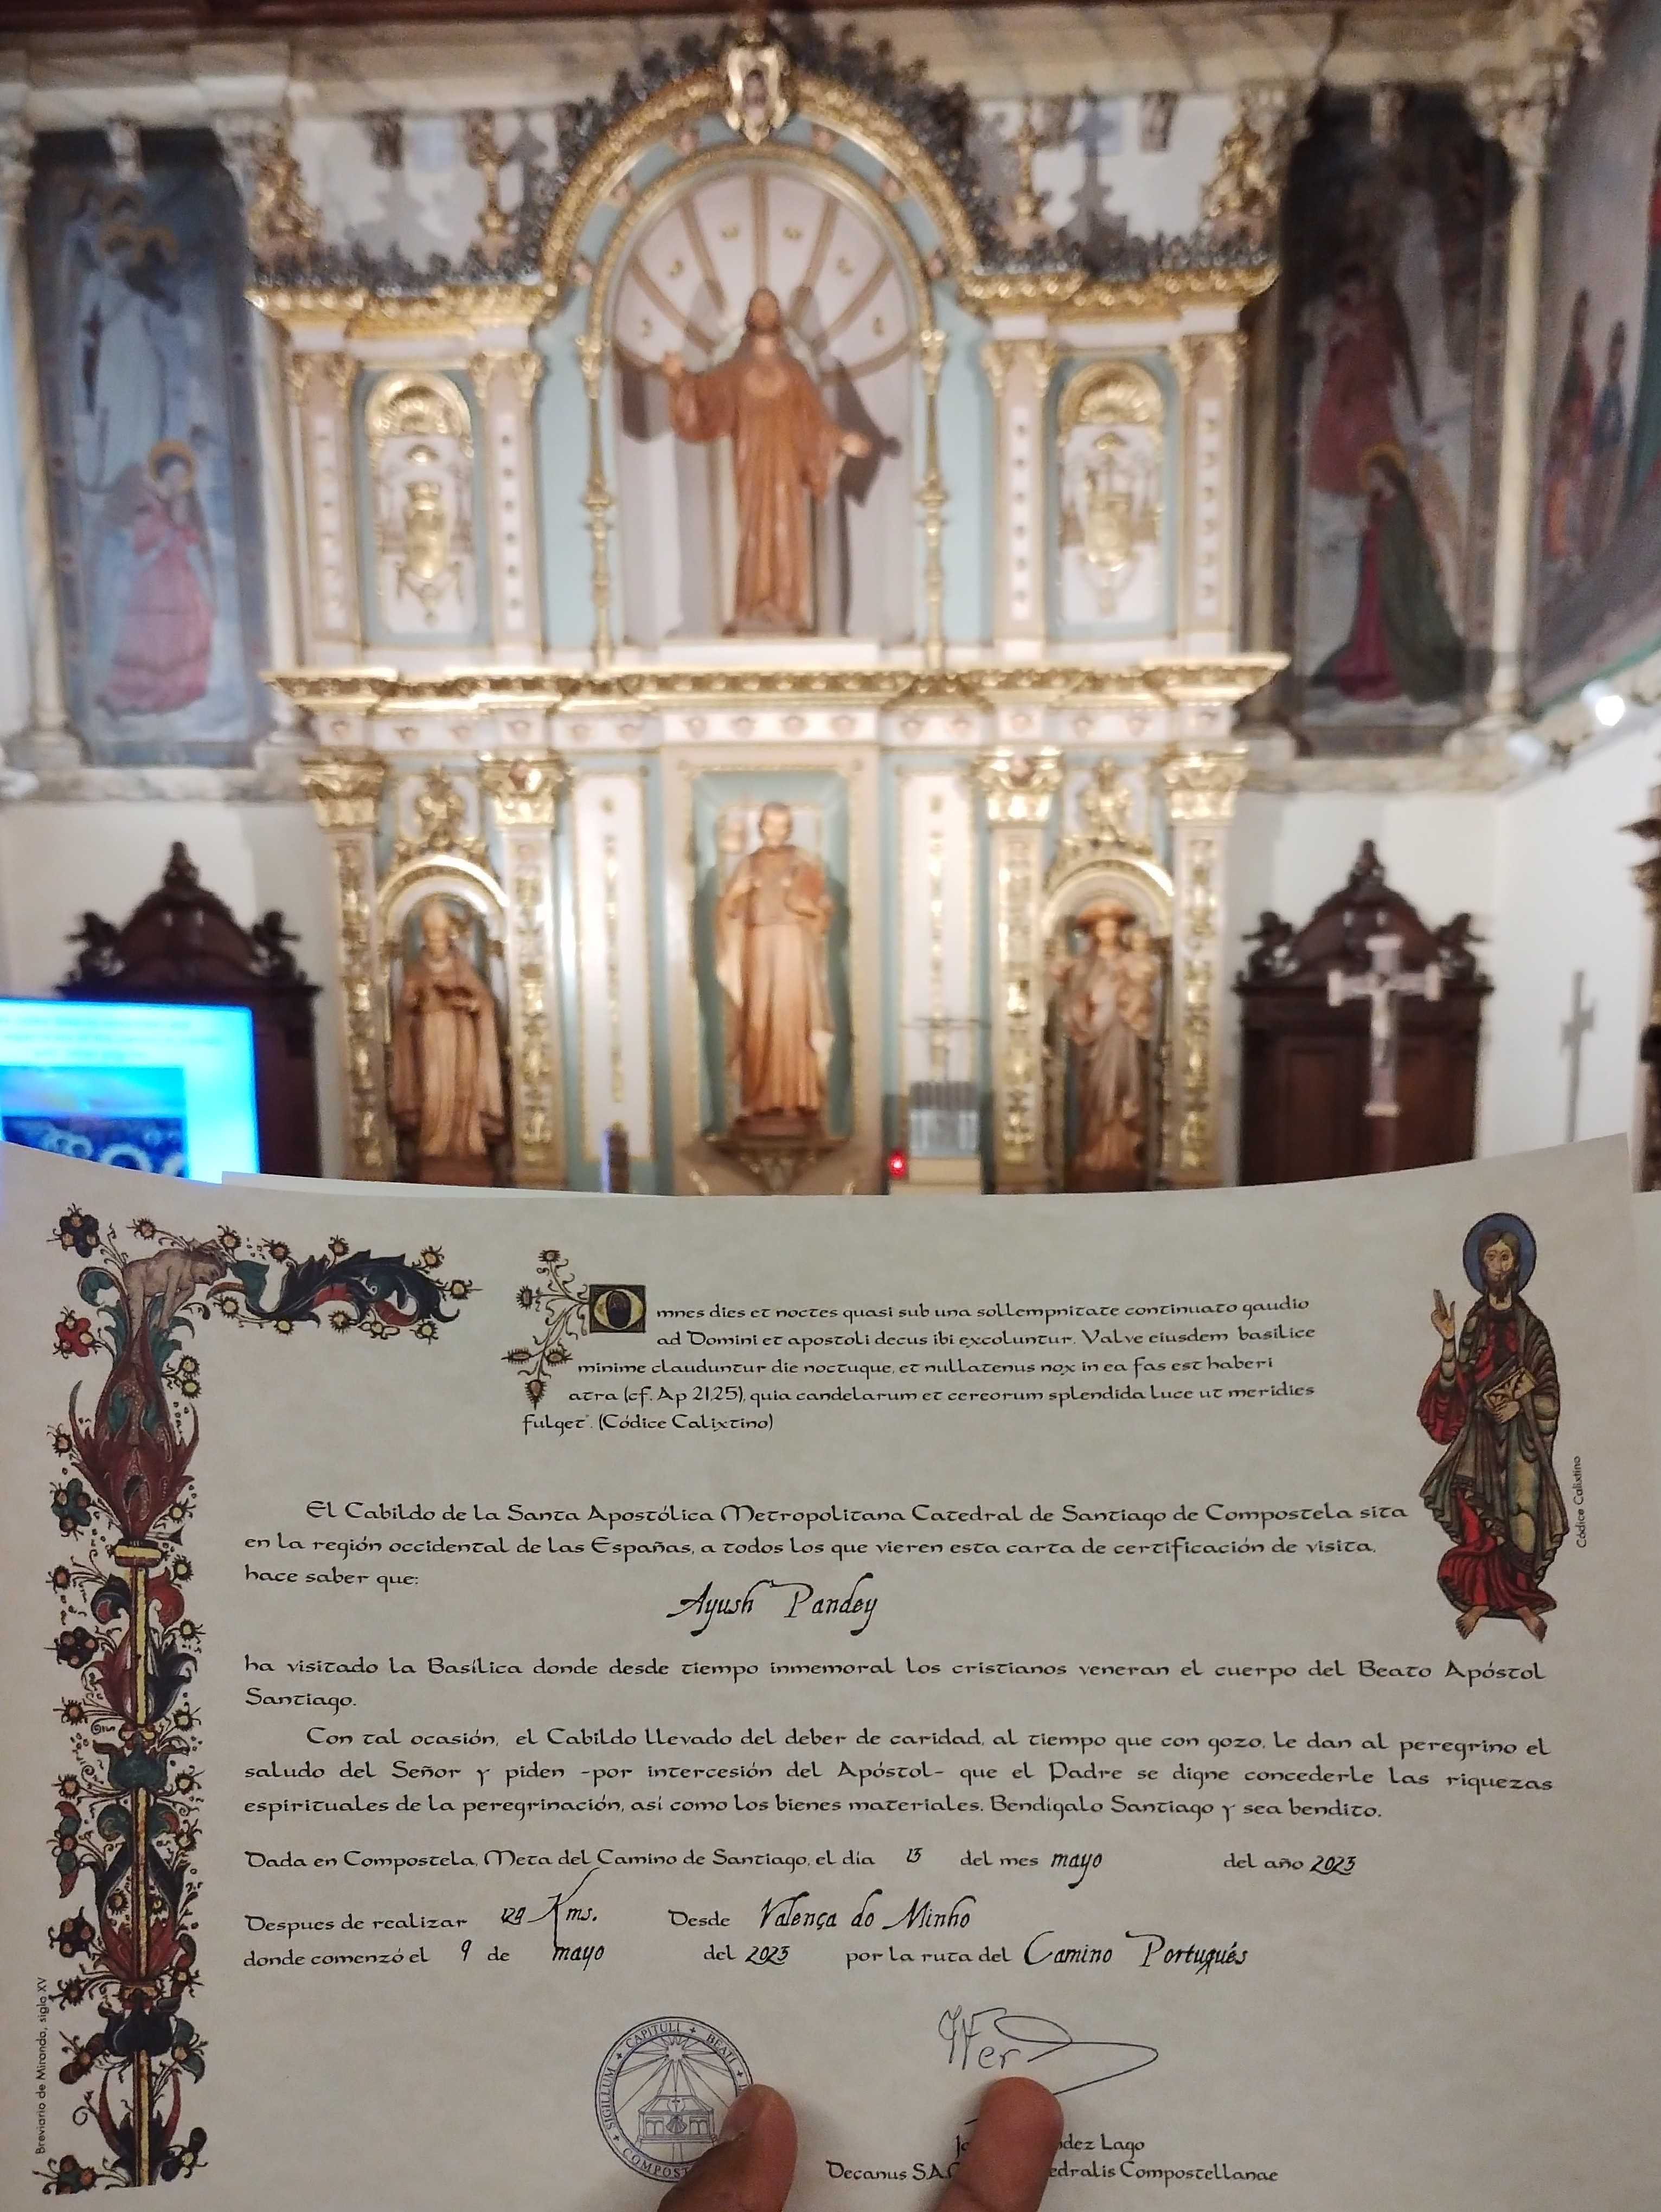 Omnes dies et noctes quasi sub una sollempnitate continuato gaudio
ad Domini et apostoli decus ibi excoluntur. Valve eiusdem basilice
minime clauduntur die noctuque, et nullatenus nox in ea fas est haberi
atra (cf. Ap 21,25), quia candelarum et cereorum splendida luce ut meridies
fulget". (Códice Calixtino)
Códice Calixtino
El Cabildo de la Santa Apostólica Metropolitana Catedral de Santiago de Compostela sita
en la región occidental de las Españas, a todos los que vieren esta carta de certificación de visita,
hace saber que:
Ayush Pandey
ha visitado la Basílica donde desde tiempo inmemoral los cristianos veneran el cuerpo del Beato Apóstol
Santiago.
Con tal ocasión, el Cabildo llevado del deber de caridad, al tiempo que con gozo, le dan al peregrino el
saludo del Señor y piden -por intercesión del Apóstol- que el Padre se digne concederle las riquezas
espirituales de la peregrinación, así como los bienes materiales. Bendígalo Santiago y sea bendito.
Dada en Compostela, Meta del Camino de Santiago, el día 13 del mes mayo del año 2023
Despues de realizar 129 Kms. Desde Valença do Minho
donde comenzó el 9 de mayo del 2023 por la ruta del Camino Portugués
Breviario de Miranda, siglo XV
SIGILLUM + CAPITULI + BEATI
ndez Lago
Decanus S.A. edralis Compostellanae